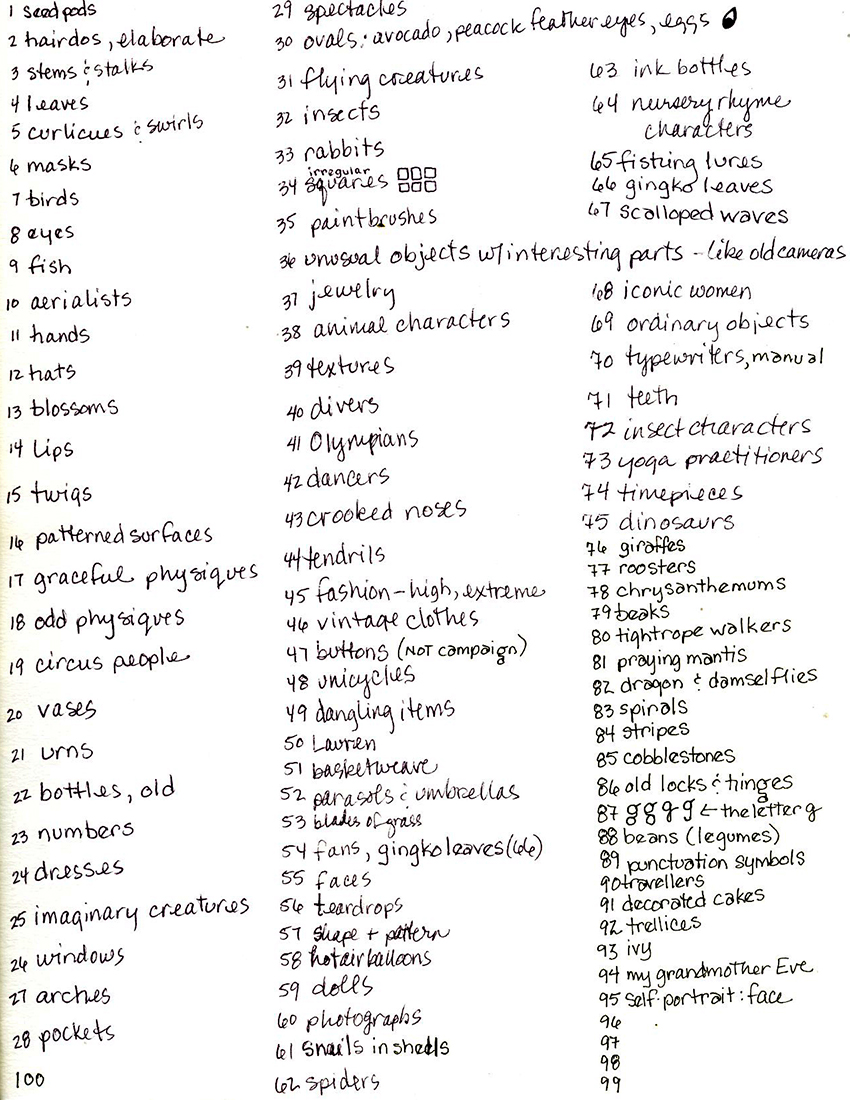 1 seedpods
2 hairdos, elaborate
3 stems & stalks
4 leaves
5 curlicues & swirls
6 masks
7 birds
8 eyes
9 fish
10 aerialists
11 hands
12 hats
13 blossoms
14 Lips
15 twigs
16 patterned surfaces
17 graceful physiques
18 odd physiques
19 circus people
20 vases
21 urns
22 bottles, old
23 numbers
24 dresses
25 imaginary creatures
26 windows
27 arches
28 pockets
100
29 spectacles
30 ovals: avocado, peacock feather eyes, eggs
31 flying creatures
32 insects
33 rabbits
34 irregular squares
35 paintbrushes
36 unusual objects w/interesting parts - like old cameras
37 jewelry
38 animal characters
39 textures
40 divers
41 Olympians
42 dancers
43 crooked noses
44 tendrils
45 fashion - high, extreme
46 vintage clothes
47 buttons (NOT campaign)
48 unicycles
49 dangling items
50 Lauren
51 basketweave
52 parasols & umbrellas
53 blades of grass
54 fans, gingko leaves (66)
55 faces
56 teardrops
57 shape + pattern
58 hot air balloons
59 dolls
60 photographs
61 snails in shells
62 spiders
63 ink bottles
64 nursery rhyme
characters
65 fishing lures
66 gingko leaves
67 scalloped waves
68 iconic women
69 ordinary objects
70 typewriters, manual
71 teeth
72 insect characters
73 yoga practitioners
74 timepieces
75 dinosaurs
76 giraffes
77 roosters
78 chrysanthemums
79 beaks
80 tightrope walkers
81 praying mantis
82 dragon & damselflies
83 spirals
84 stripes
85 cobblestones
86 old locks & hinges
87 g g g g ← the letter g
88 beans (legumes)
89 punctuation symbols
90 travellers
91 decorated cakes
92 trellices
93 ivy
94 my grandmother Eve
95 self-portrait: face
96
97
98
99